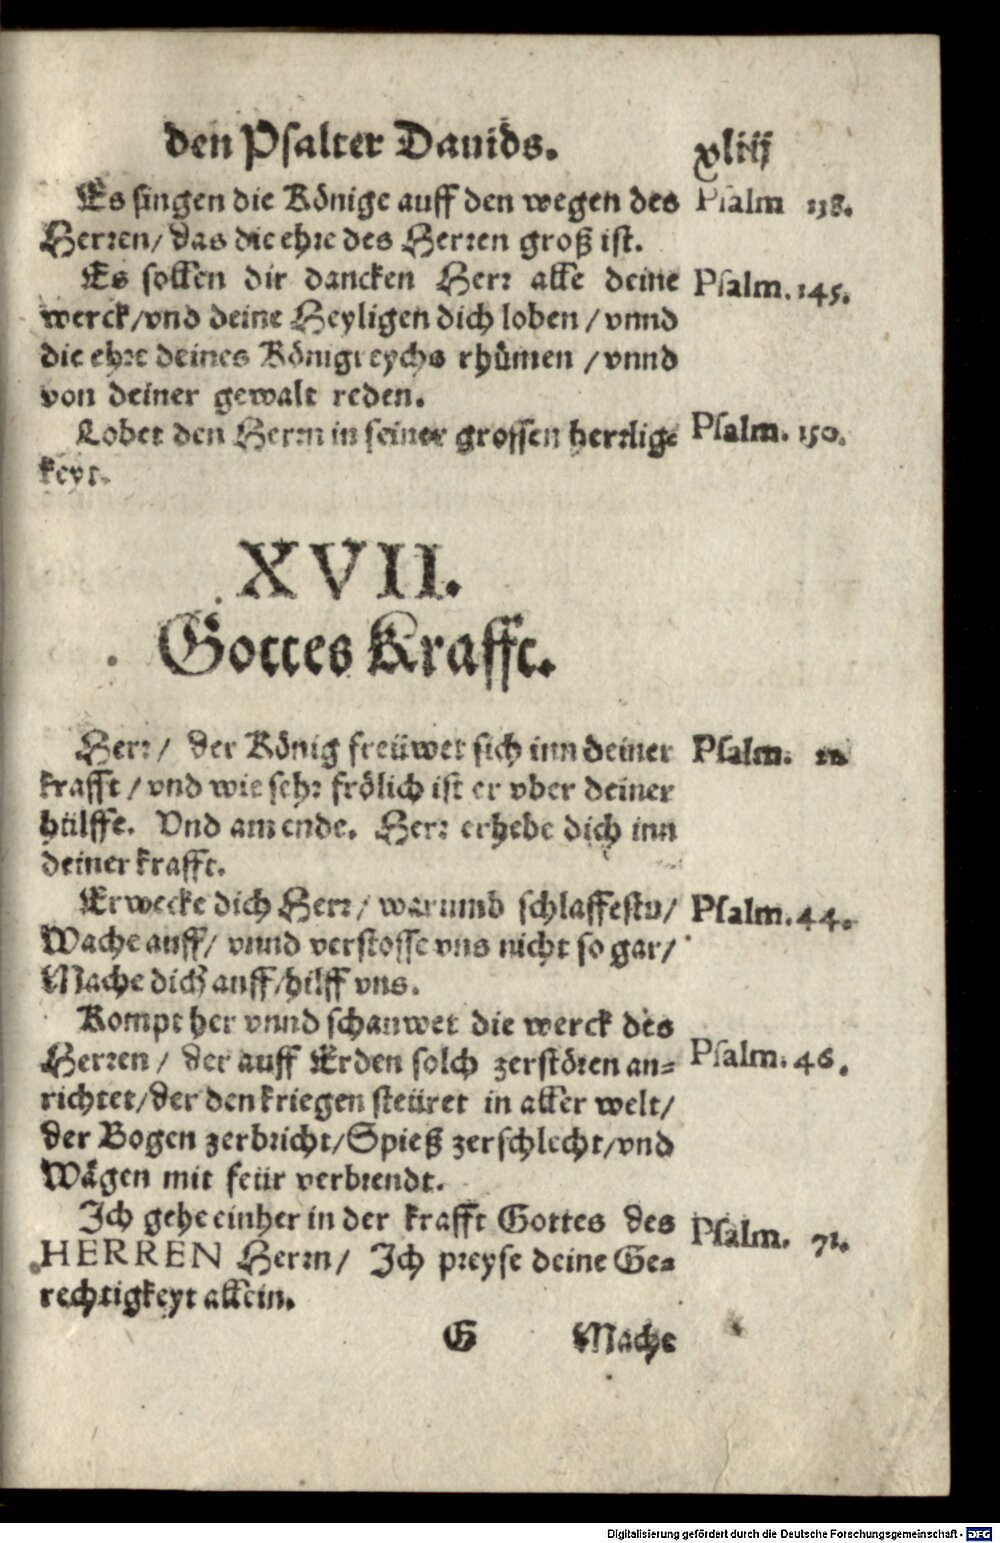 den Psalter Dauids. xliij
Es singen die Könige auff den wegen des Psalm 138.
Herren/ das die ehre des Herren groß ist.
Es sollen dir dancken Herr alle deine Psalm. 145.
werck/vnd deine Heyligen dich loben / vnnd
die ehre deines Königreychs rhůmen / vnnd
von deiner gewalt reden.
Lobet den Herrn in seiner grossen herrlig= Psalm. 150.
keyt.
XVII.
Gottes Krafft.
Herr / der König freüwet sich inn deiner Psalm.
krafft / vnd wie sehr frölich ist er vber deiner
hülffe. Vnd am ende. Herr erhebe dich inn
deiner krafft.
Erwecke dich Herr / warumb schlaffestu/ Psalm. 44.
Wache auff/ vnnd verstosse vns nicht so gar/
Mache dich auff/hilff vns.
Kompt her vnnd schauwet die werck des
Herren / der auff Erden solch zerstören an= Psalm. 46.
richtet/der den kriegen steüret in aller welt/
der Bogen zerbricht/Spieß zerschlecht/vnd
Wägen mit feür verbrendt.
Ich gehe einher in der krafft Gottes des Psalm. 71.
HERREN Herrn/ Ich preyse deine Ge=
rechtigkeyt allein.
G Mache
Digitalisierung gefördert durch die Deutsche Forschungsgemeinschaft - DFG